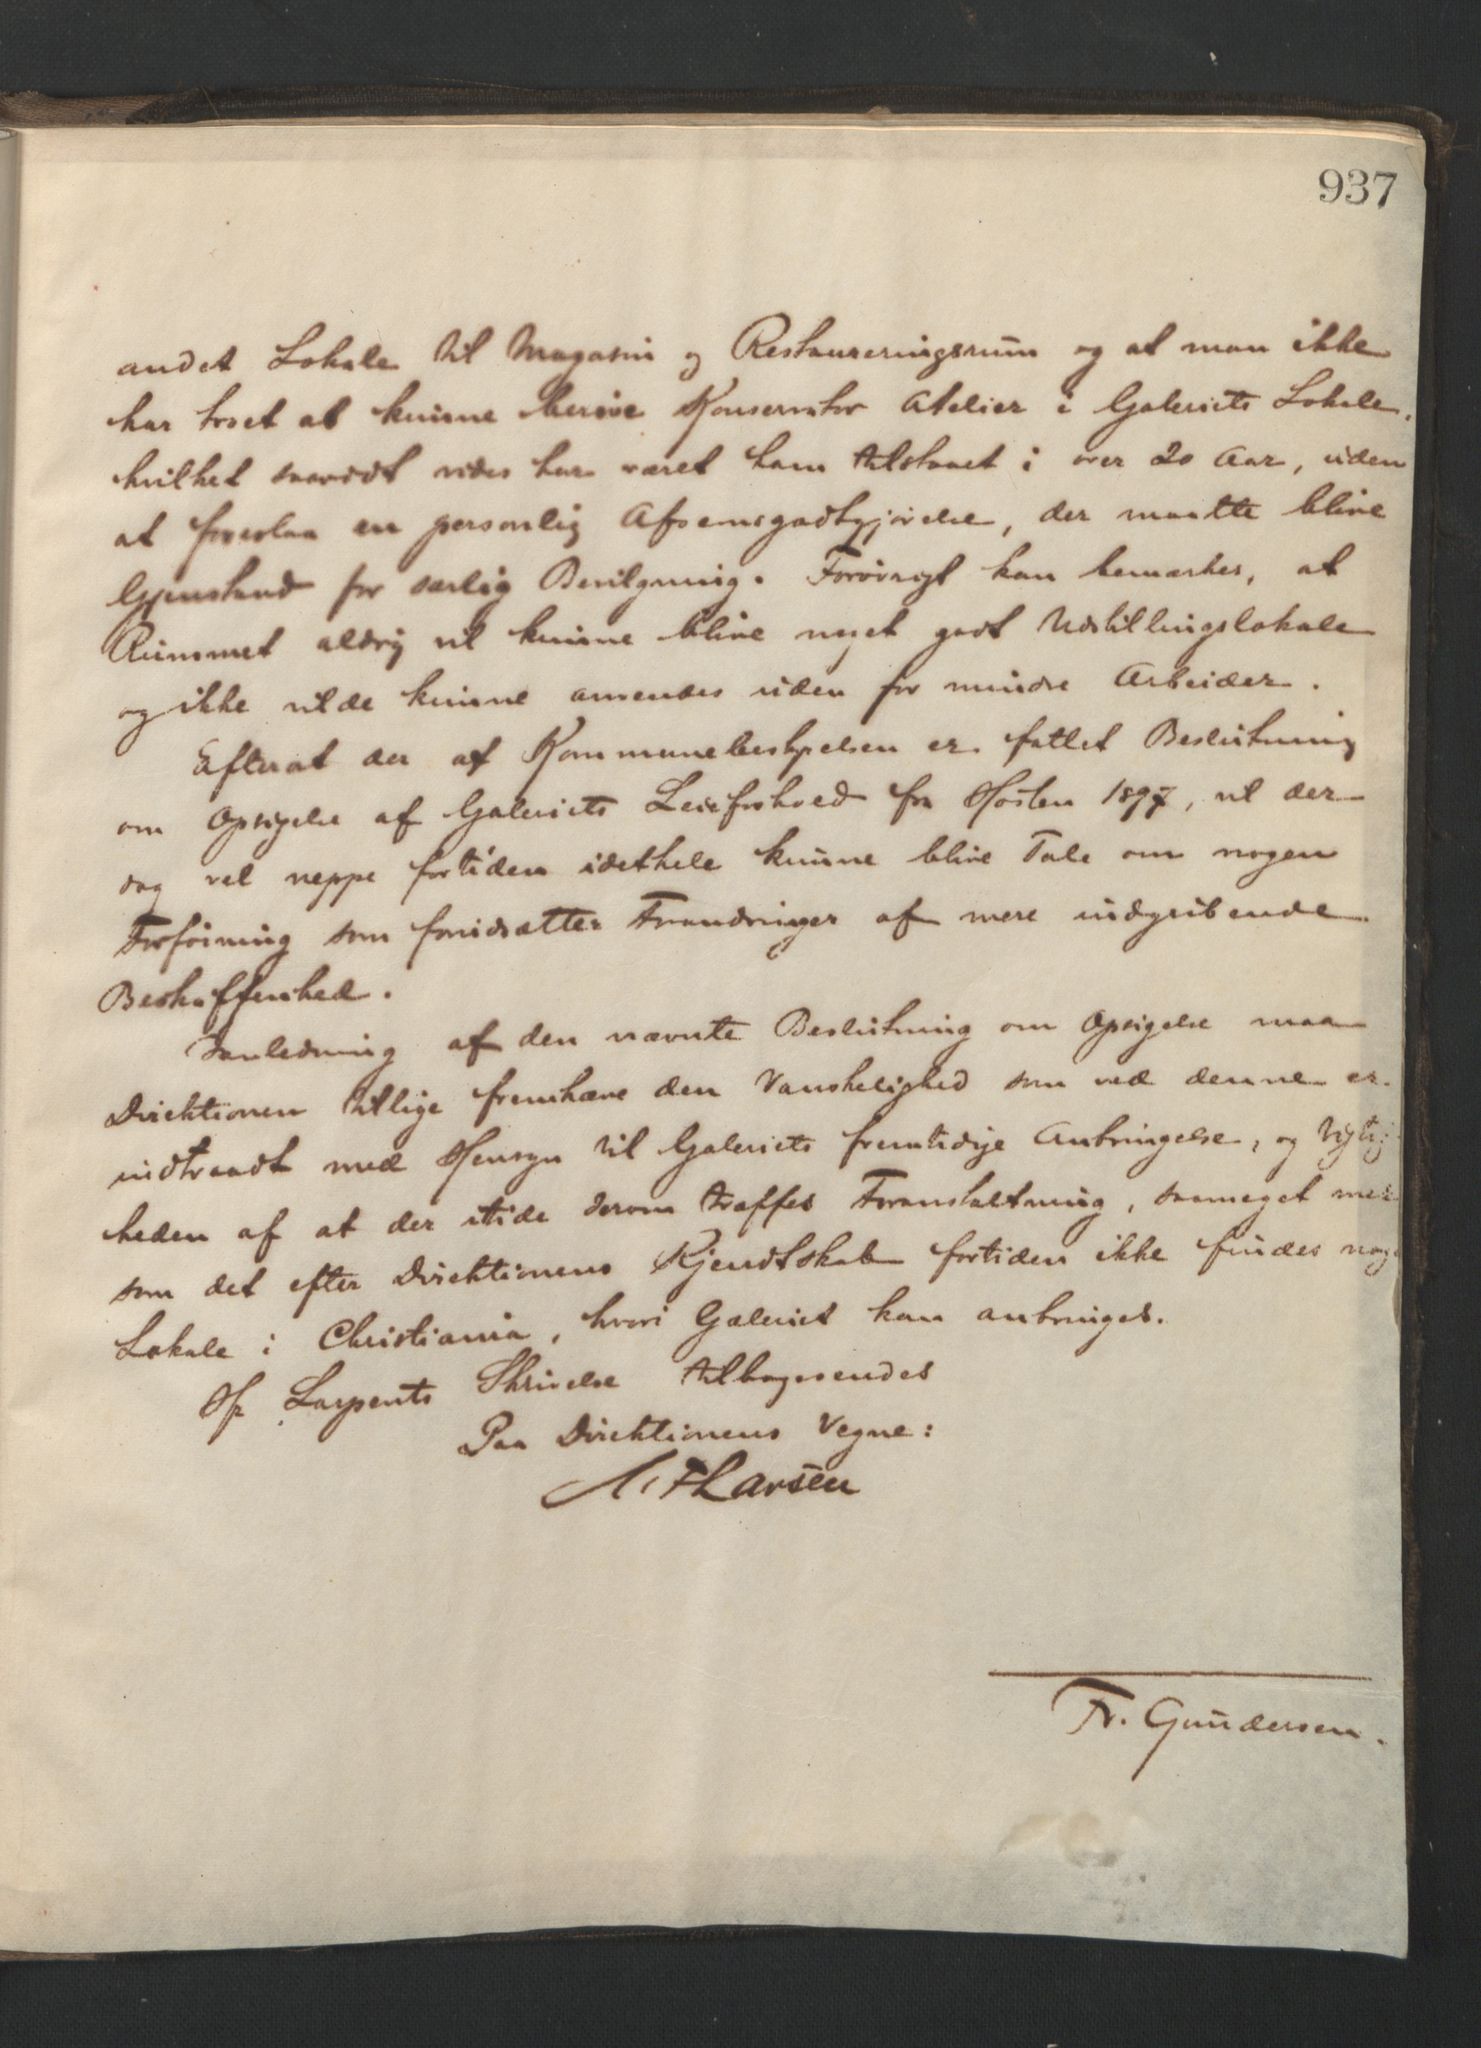 937
andet Lokale til Magasin og Restaureringsrum og at man ikke
har troet at kunne berøve Konservator Atelier i Galeriets Lokale,
hvilket saavidt vides har været ham tilstaaet i over 20 Aar, uden
at foreslaa en personlig Afsavnsgodtgjørelse, der maatte blive
Gjenstand for særlig Bevilgning. Forøvrigt kan bemærkes, at
Rummet aldrig vil kunne blive noget godt Udstillingslokale
og ikke vilde kunne anvendes uden for mindre Arbeider.
Efterat der af Kommunebestyrelsen er fattet Beslutning
om Opsigelse af Galeriets Leieforhold fra Høsten 1897, vil der
dog vel neppe fortiden idethele kunne blive Tale om nogen
Forføining som forudsætter Forandringer af mere indgribende
Beskaffenhed.
Ianledning af den nævnte Beslutning om Opsigelse maa
Direktionen tillige fremhæve den Vanskelighed som ved denne er
indtraadt med Hensyn til Galeriets fremtidige Anbringelse, og Vigtig-
heden af at der itide derom træffes Foranstaltning, saameget mer
som det efter Direktionens Kjendtskab fortiden ikke findes noge
Lokale i Christiania, hvori Galeriet kan anbringes.
Hr Larpents Skrivelse tilbagesendes
Paa Direktionens Vegne:
Larsen
Fr. Gundersen.